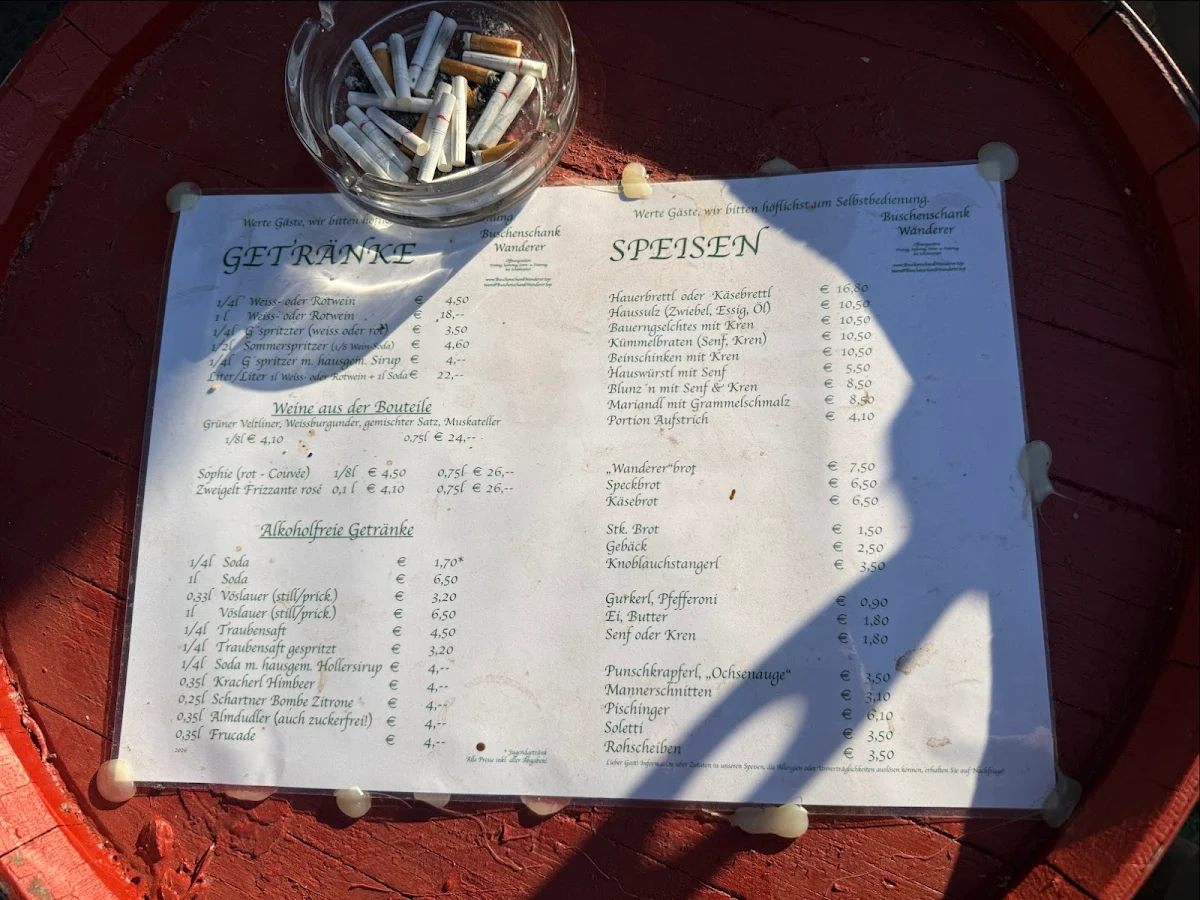 Werte Gäste, wir bitten höflichst
Buschenschank
Wanderer
GETRÄNKE
1/4l Weiss- oder Rotwein € 4,50
1 l Weiss- oder Rotwein € 18,--
1/4l G´spritzter (weiss oder rot) € 3,50
1/2l Sommerspritzer (1/8 Wein-Soda) € 4,60
1/4l G´spritzer m. hausgem. Sirup € 4,--
Liter/Liter 1l Weiss- oder Rotwein + 1l Soda € 22,--
Weine aus der Bouteile
Grüner Veltliner, Weissburgunder, gemischter Satz, Muskateller
1/8l € 4,10 0,75l € 24,--
Sophie (rot - Couvée) 1/8l € 4,50 0,75l € 26,--
Zweigelt Frizzante rosé 0,1 l € 4,10 0,75l € 26,--
Alkoholfreie Getränke
1/4l Soda € 1,70*
1l Soda € 6,50
0,33l Vöslauer (still/prick.) € 3,20
1l Vöslauer (still/prick.) € 6,50
1/4l Traubensaft € 4,50
1/4l Traubensaft gespritzt € 3,20
1/4l Soda m. hausgem. Hollersirup € 4,--
0,35l Kracherl Himbeer € 4,--
0,25l Schartner Bombe Zitrone € 4,--
0,35l Almdudler (auch zuckerfrei!) € 4,--
0,35l Frucade € 4,--
* Jugendgetränk
Alle Preise inkl. aller Abgaben!
Werte Gäste, wir bitten höflichst um Selbstbedienung.
Buschenschank
Wanderer
SPEISEN
Hauerbrettl oder Käsebrettl € 16,80
Haussulz (Zwiebel, Essig, Öl) € 10,50
Bauerngselchtes mit Kren € 10,50
Kümmelbraten (Senf, Kren) € 10,50
Beinschinken mit Kren € 10,50
Hauswürstl mit Senf € 5,50
Blunz´n mit Senf & Kren € 8,50
Mariandl mit Grammelschmalz € 8,50
Portion Aufstrich € 4,10
„Wanderer“brot € 7,50
Speckbrot € 6,50
Käsebrot € 6,50
Stk. Brot € 1,50
Gebäck € 2,50
Knoblauchstangerl € 3,50
Gurkerl, Pfefferoni € 0,90
Ei, Butter € 1,80
Senf oder Kren € 1,80
Punschkrapferl, „Ochsenauge“ € 3,50
Mannerschnitten € 3,10
Pischinger € 6,10
Soletti € 3,50
Rohscheiben € 3,50
Lieber Gast! Information über Zutaten in unseren Speisen, die Allergien oder Unverträglichkeiten auslösen können, erhalten Sie auf Nachfrage!